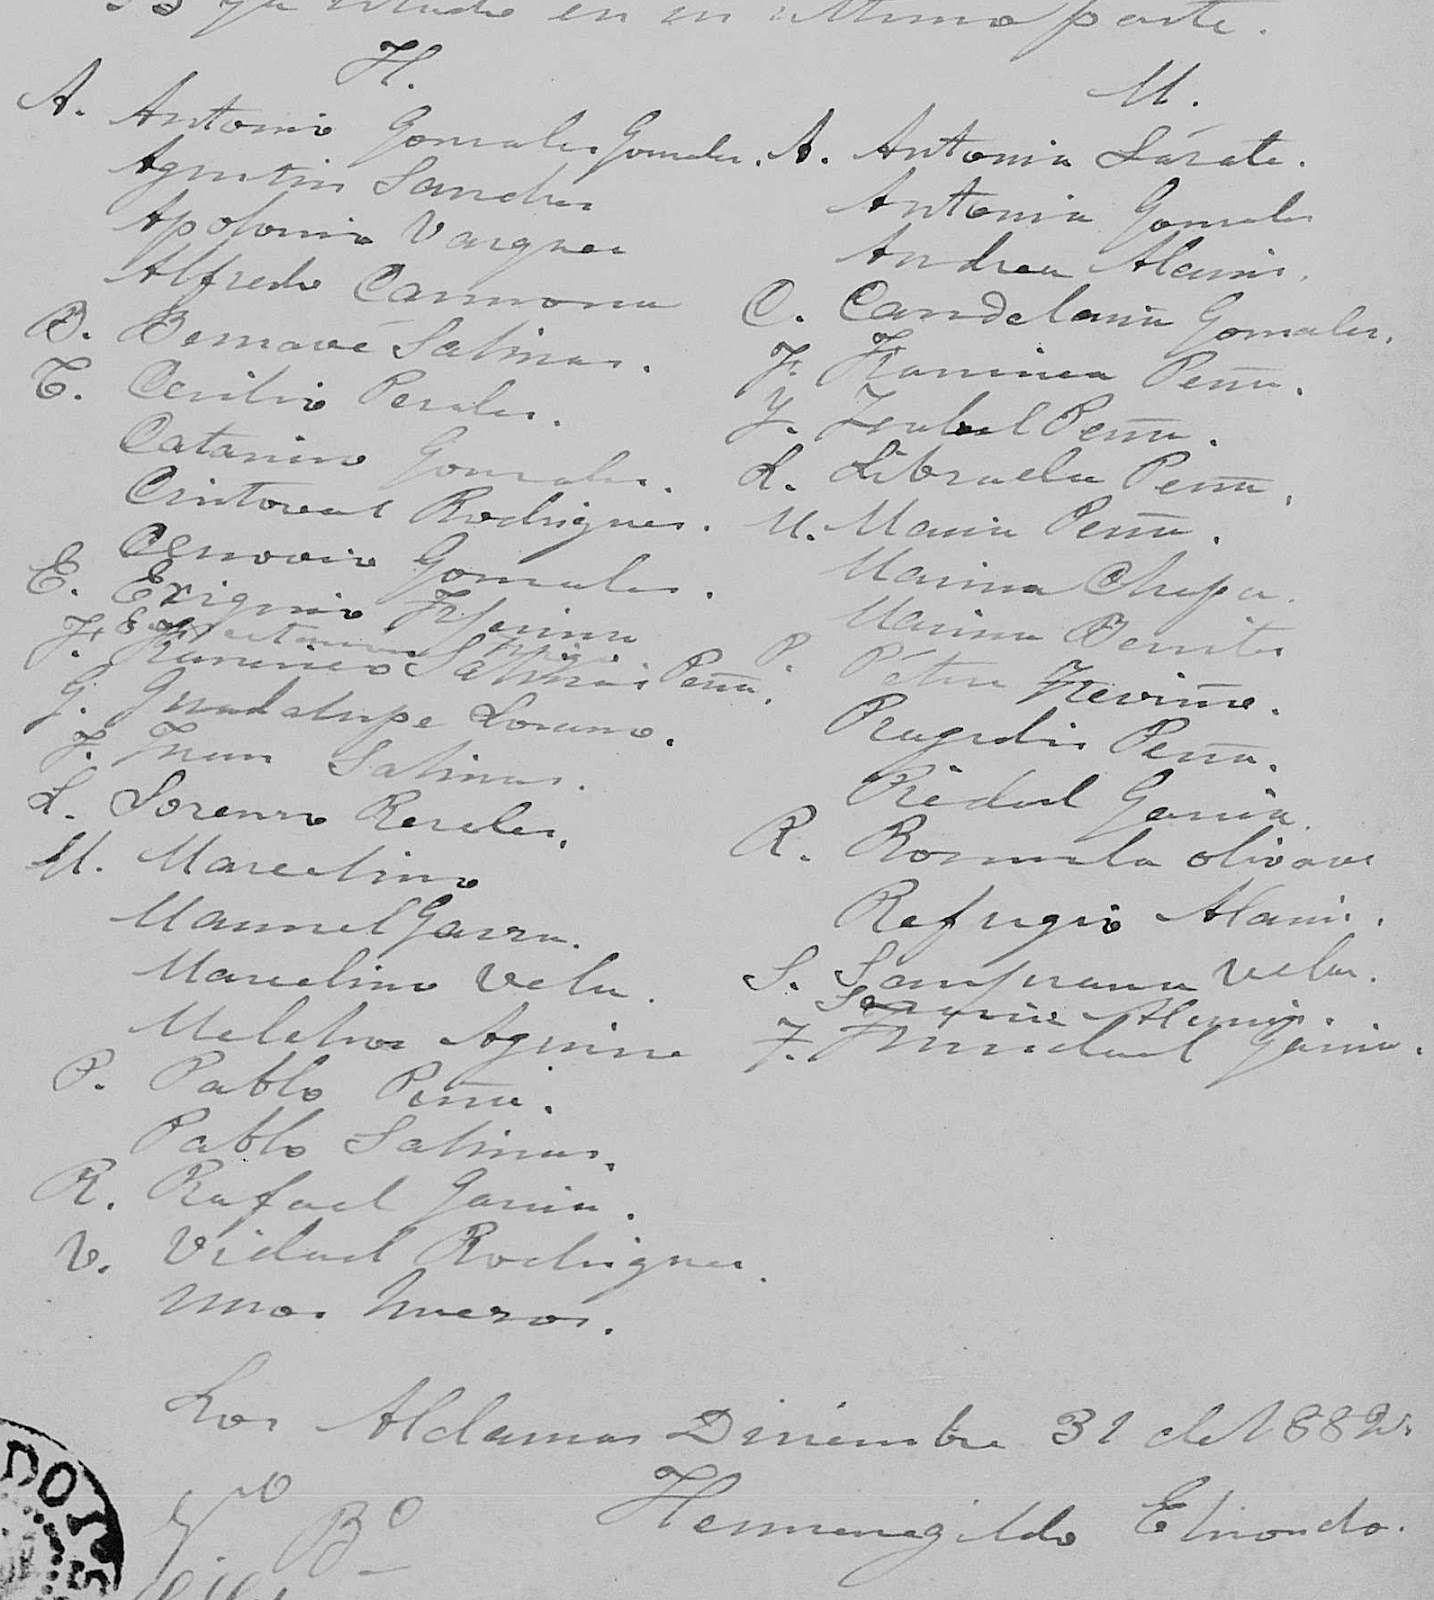 en su última parte.
H.
A. Antonio Gonzales Gonzales.
Agustin Sanches
Apolonio Vasques
Alfredo Carmona
B. Bernavé Salinas.
C. Cecilio Perales.
Catarino Gonzales.
Cristoval Rodrigues.
Cenovio Gonzales.
E. Exiquio Treviño
F. Francisco Salinas Peña.
G. Guadalupe Losano.
J. Juan Salinas.
L. Lorenzo Rereles.
M. Marcelino
Manuel Garza.
Marcelino Vela.
Melchor Aguirre
P. Pablo Peña.
Pablo Salinas.
R. Rafael Garcia.
V. Vidal Rodrigues.
Unos Nueros.
M.
A. Antonia Sárate.
Antonia Gonzales
Andrea Alanis.
C. Candelaria Gonzales.
F. Francisca Peña.
Y. Isabel Peña.
L. Librada Peña.
M. Maria Peña.
Marina Chapa.
Marina Benites
P. Petra Treviño.
Pragedis Peña.
Piedad Garcia.
R. Romula Olivares
Refugio Alanis.
S. Vela.
Alanis.
T. Garcia.
Los Aldamas Diciembre 31 de 1882.
Vo Bo
Hermenegildo Elizondo.